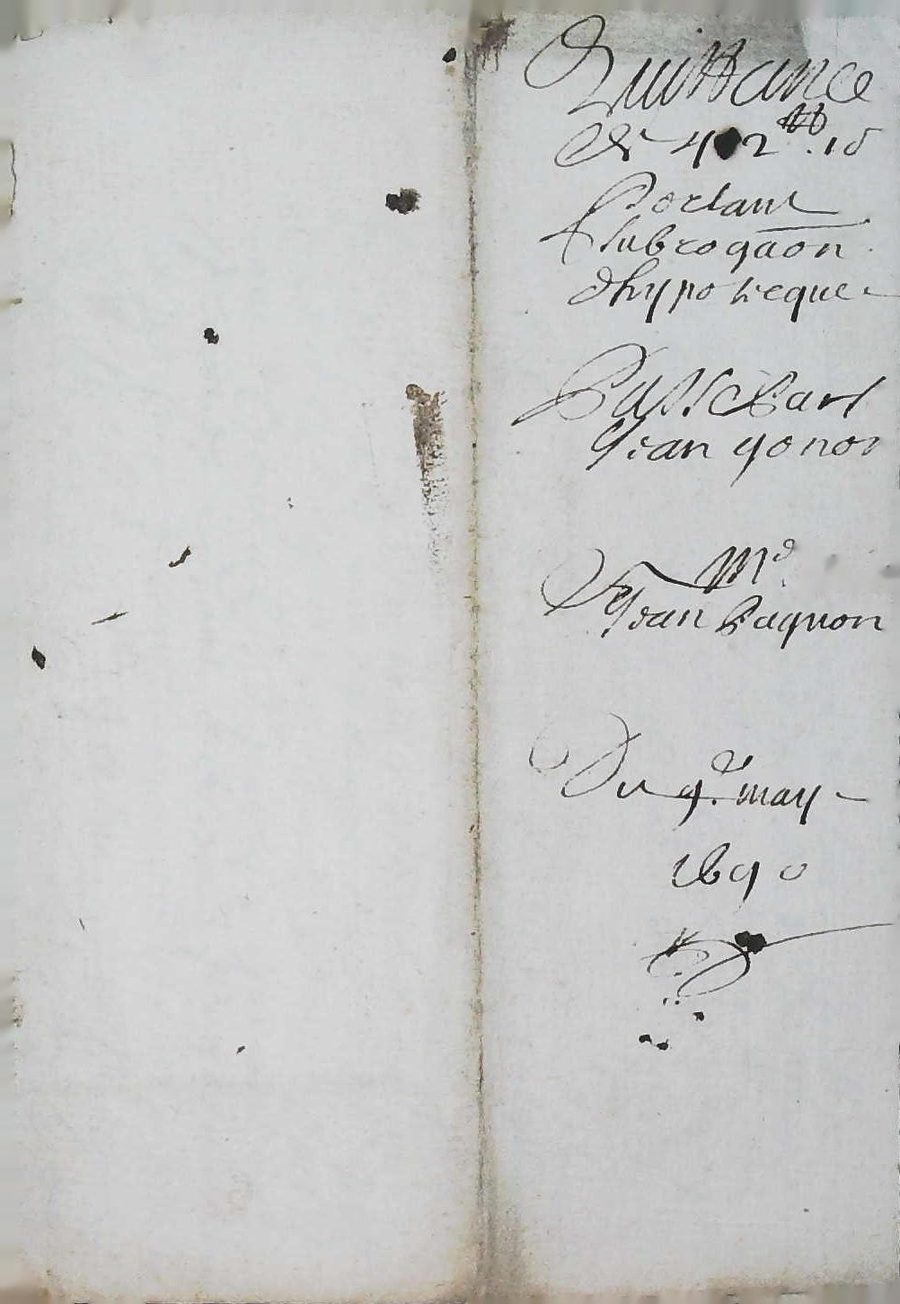 Quittance
De 4 2 tt. 10
Portant
subrogaõn
dhypotecque
Passé Par
Jean gonon
A Md
Jean Pagnon
Du 9e. may
1690